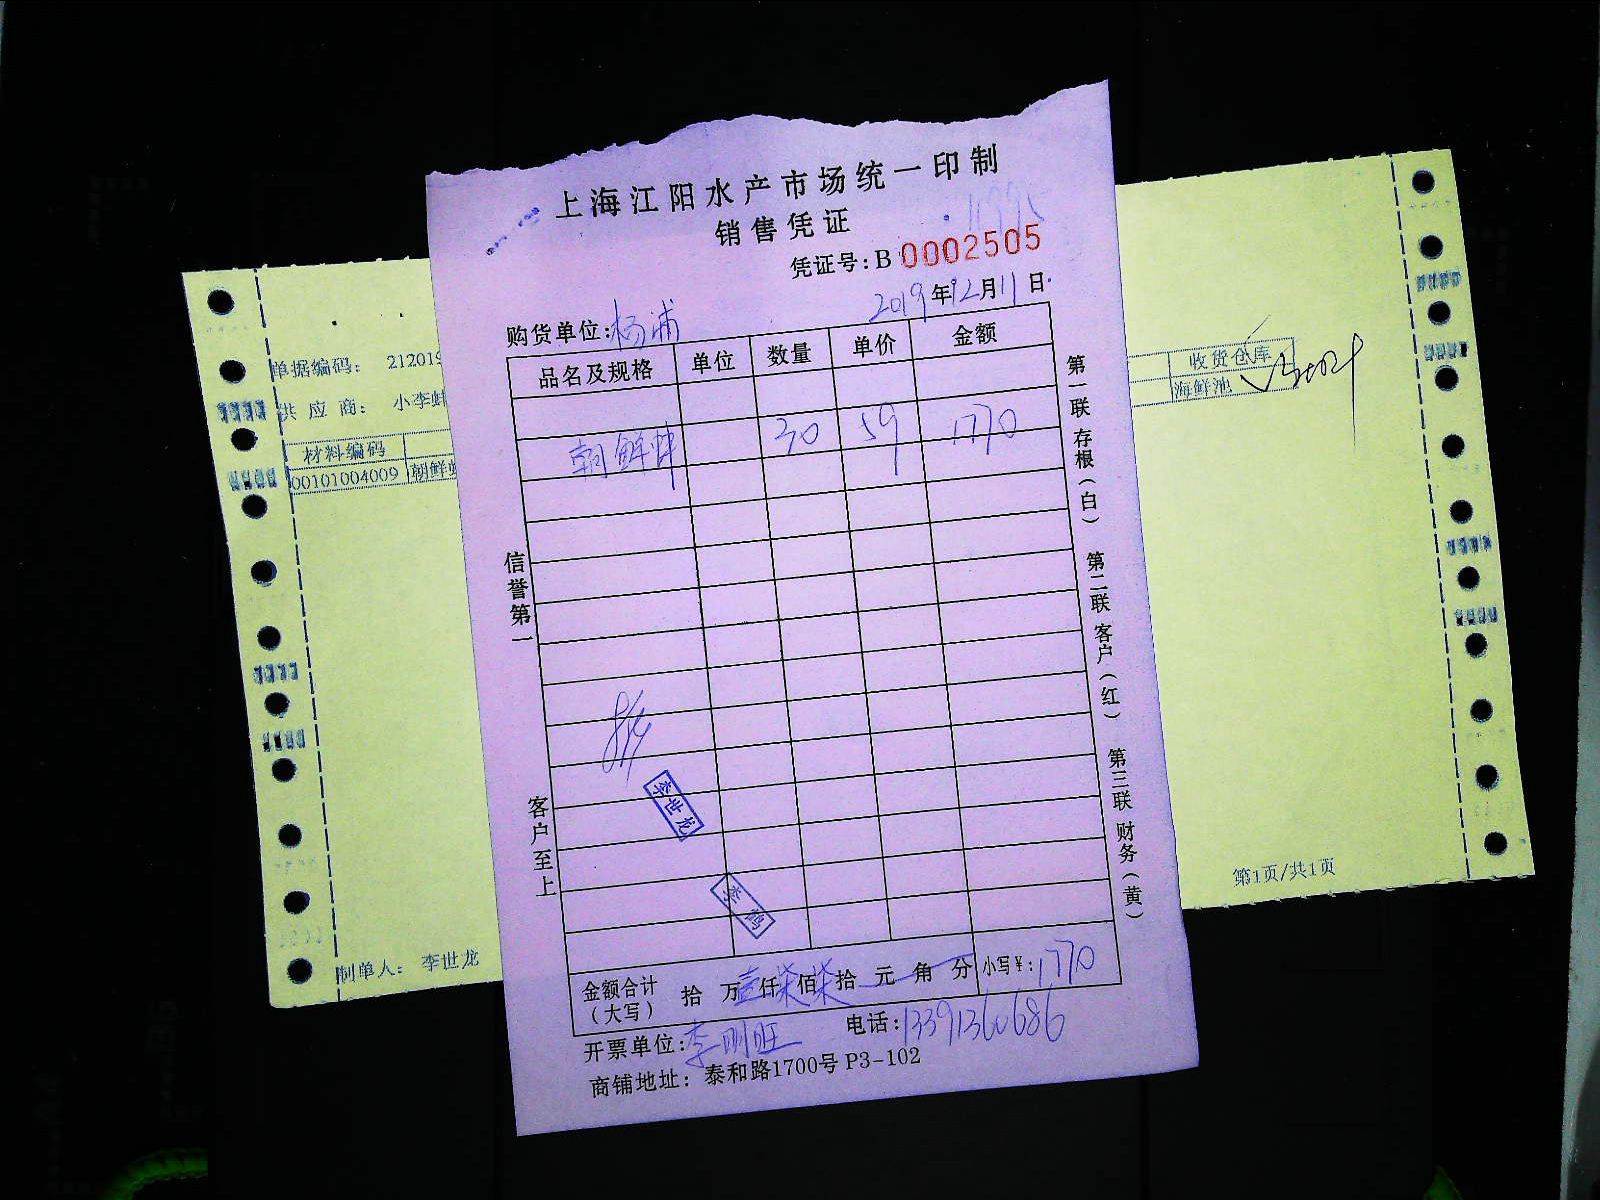 上海江阳水产市场统一印制
销售凭证
凭证号:B 0002505
2019年12月11日
购货单位:杨浦
品名及规格 单位 数量 单价 金额
朝鲜蚌 30 59 1770
信誉第一
客户至上
李世龙
李鹤
第一联 存根(白) 第二联 客户(红) 第三联 财务(黄)
金额合计(大写) 拾 万壹仟柒佰柒拾 元 角 分 小写¥:1770
开票单位:李刚旺 电话:13391360686
商铺地址:泰和路1700号 P3-102
单据编码: 212019
供应商: 小李蚌
材料编码
00101004009 朝鲜
制单人: 李世龙
收货仓库
海鲜池
第1页/共1页